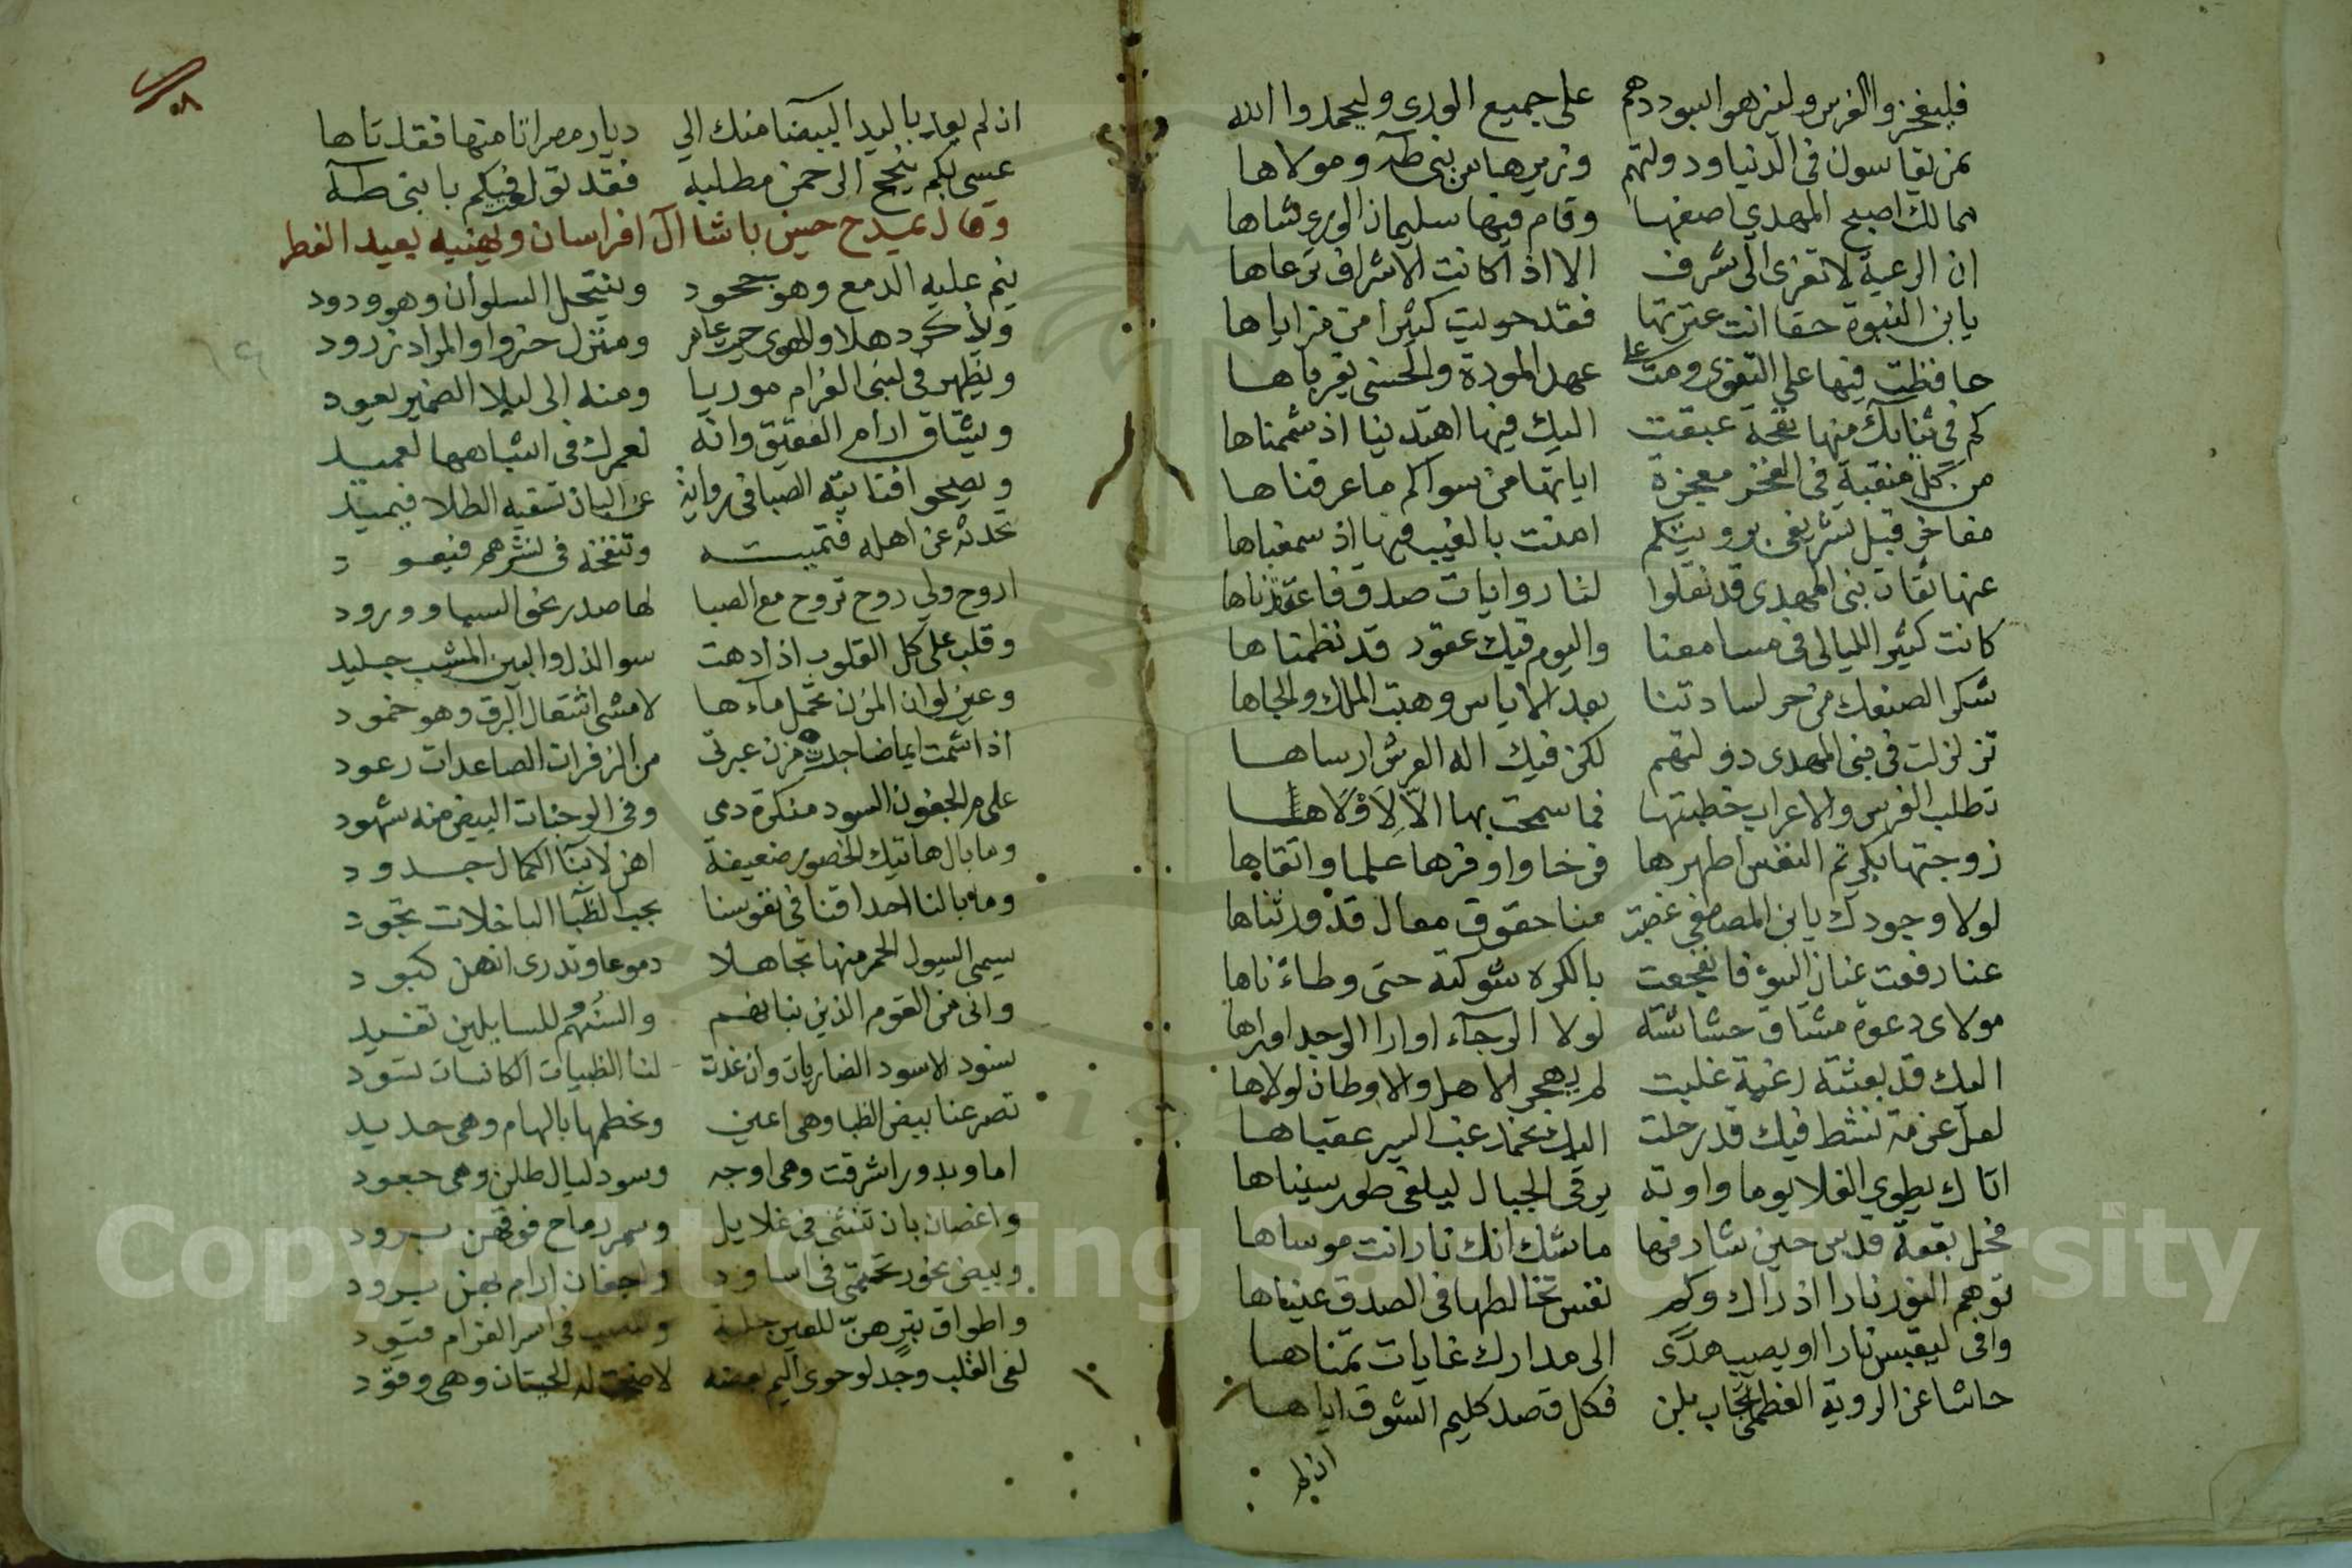 فليفخروا الفرس ولتزهو اسود دهم على جميع الورى وليحمدوا الله
بمن يقاسون في الدنيا ودولتهم ومن سماها من بني طه ومولاها
ممالك اصبح المهدي اصفها وقام فيها سليمان الورى شاها
ان الرعية لا تعزى الى شرف الا اذا كانت الاشراف ترعاها
يا بن النبوة حقا انت عترتها فقد حويت كثيرا من مزاياها
حافظت فيها على التقوى ومت على عهد المودة والحسنى بقرباها
كم في ثنايك منها نفحة عبقت اليك فيها اهتدينا اذ شممناها
من كل منقبة في الفخر معجزة اياتها من سواكم ما عرفناها
مفاخر قبل تشريفي برويتكم امنت بالغيب فيها اذ سمعناها
عنها ثقات بني المهدي قد نقلوا لنا روايات صدق فاعتقدناها
كانت كثير الليالي في مسامعنا واليوم فيك عقود قد نظمناها
شكرا لصنعك من حر لسادتنا بعد الاياس وهبت الملك والجاها
تزلزلت في بني المهدي دولتهم لكن فيك اله العرش ارساها
تطلب الفرس والاعراب خطبتها فما سمحت بها الا لاولاها
زوجتها بكريم النفس اطهرها فرخا واوفرها علما واتقاها
لولا وجودك يا بن المصطفى غصبت منا حقوق معال قد ورثناها
عنا رفعت عنان السوء فانفجعت بالكره شوكته حتى وطأناها
مولاي دعوة مشتاق حشاشته لولا الرجآء اوارا الوجد اوراها
اليك قد بعثته رغبة غلبت لم يهجر الاهل والاوطان لولاها
لعل عزمة تنشط فيك قد رحلت اليك تحمد غب السير عقباها
اتاك يطوي الفلا يوما واونة يرقى الجبال ليلقى طور سيناها
فحل بقعة قدس حين شارفها ما شك انك نار انت موساها
توهم النور نارا اذ راك وكم نفس تخالطها في الصدق عيناها
وافى ليقبس نارا او يصيب هدى الى مدارك غايات تمناها
حاشا عن الروية العظمى تجاب بلن فكل قصد كليم الشوق اياها
ان لم
اذ لم يعد باليد البيضا منك الي ديار مصر اتا منها فقد تاها
عسى بكم ينجح الرحمن مطلبه فقد توله فيكم يا بني طه
وقال يمدح حسين باشا ال افراسان ويهنيه بعيد الفطر
ينم عليه الدمع وهو جحود وينتحل السلوان وهو ودود
ولاذكر دهلا والهوى حيث عامر ومنزل حزوا والمراد زرود
ويظهر في لبنى الغرام موريا ومنه الى ليلا الضمير يعود
ويشتاق ارام العقيق وانه لعمرك في اشباهها لعميد
ويصحوا فتاتيه الصبا في رواية عن البان تسقيه الطلا فيميد
تحدثه عن اهله فتميته وتنفخه في نشرهم فيعود
اروح ولي روح تروح مع الصبا لها صدر نحو السما وورود
وقلب على كل القلوب اذا دهت سوا الذل والبين المشب جليد
وعين لو ان المزن تحمل مآءها لامشى اشتعال البرق وهو خمود
اذا شمت ايماضا حدت مزن عبرتي من الزفرات الصاعدات رعود
علام الجفون السود منكرة دمي وفي الوجنات البيض منه شهود
وما بال هاتيك الخصور ضعيفة اهن لابنآ الكمال جدود
وما بالنا احداقنا في نفوسنا بحب الظبآ الباخلات تجود
يسمى السيول الحمر منها تجاهلا دموعا وتدري انهن كبود
واني من القوم الذين بنانهم والسنهم للسايلين تفيد
نسود الاسود الضاريات وان غدت لنا الظبيات الكانسات تسود
تصرعنا بيض الظبا وهي اعين ونحطمها بالهام وهي حديد
اما وبدور اشرقت وهي اوجه وسود ليال طلن وهي جعود
واغصان بان تنثني في غلايل وسمر رماح فوقهن برود
وبيض نحور تحتمي في اساود واجفان ارام بهن برود
واطواق تبر هن للعين حلية في اسر الغرام قيود
لفي القلب وجد لو حوى اليم بعضه لاضحت له الحيتان وهي وقود
Copyright © King Saud University